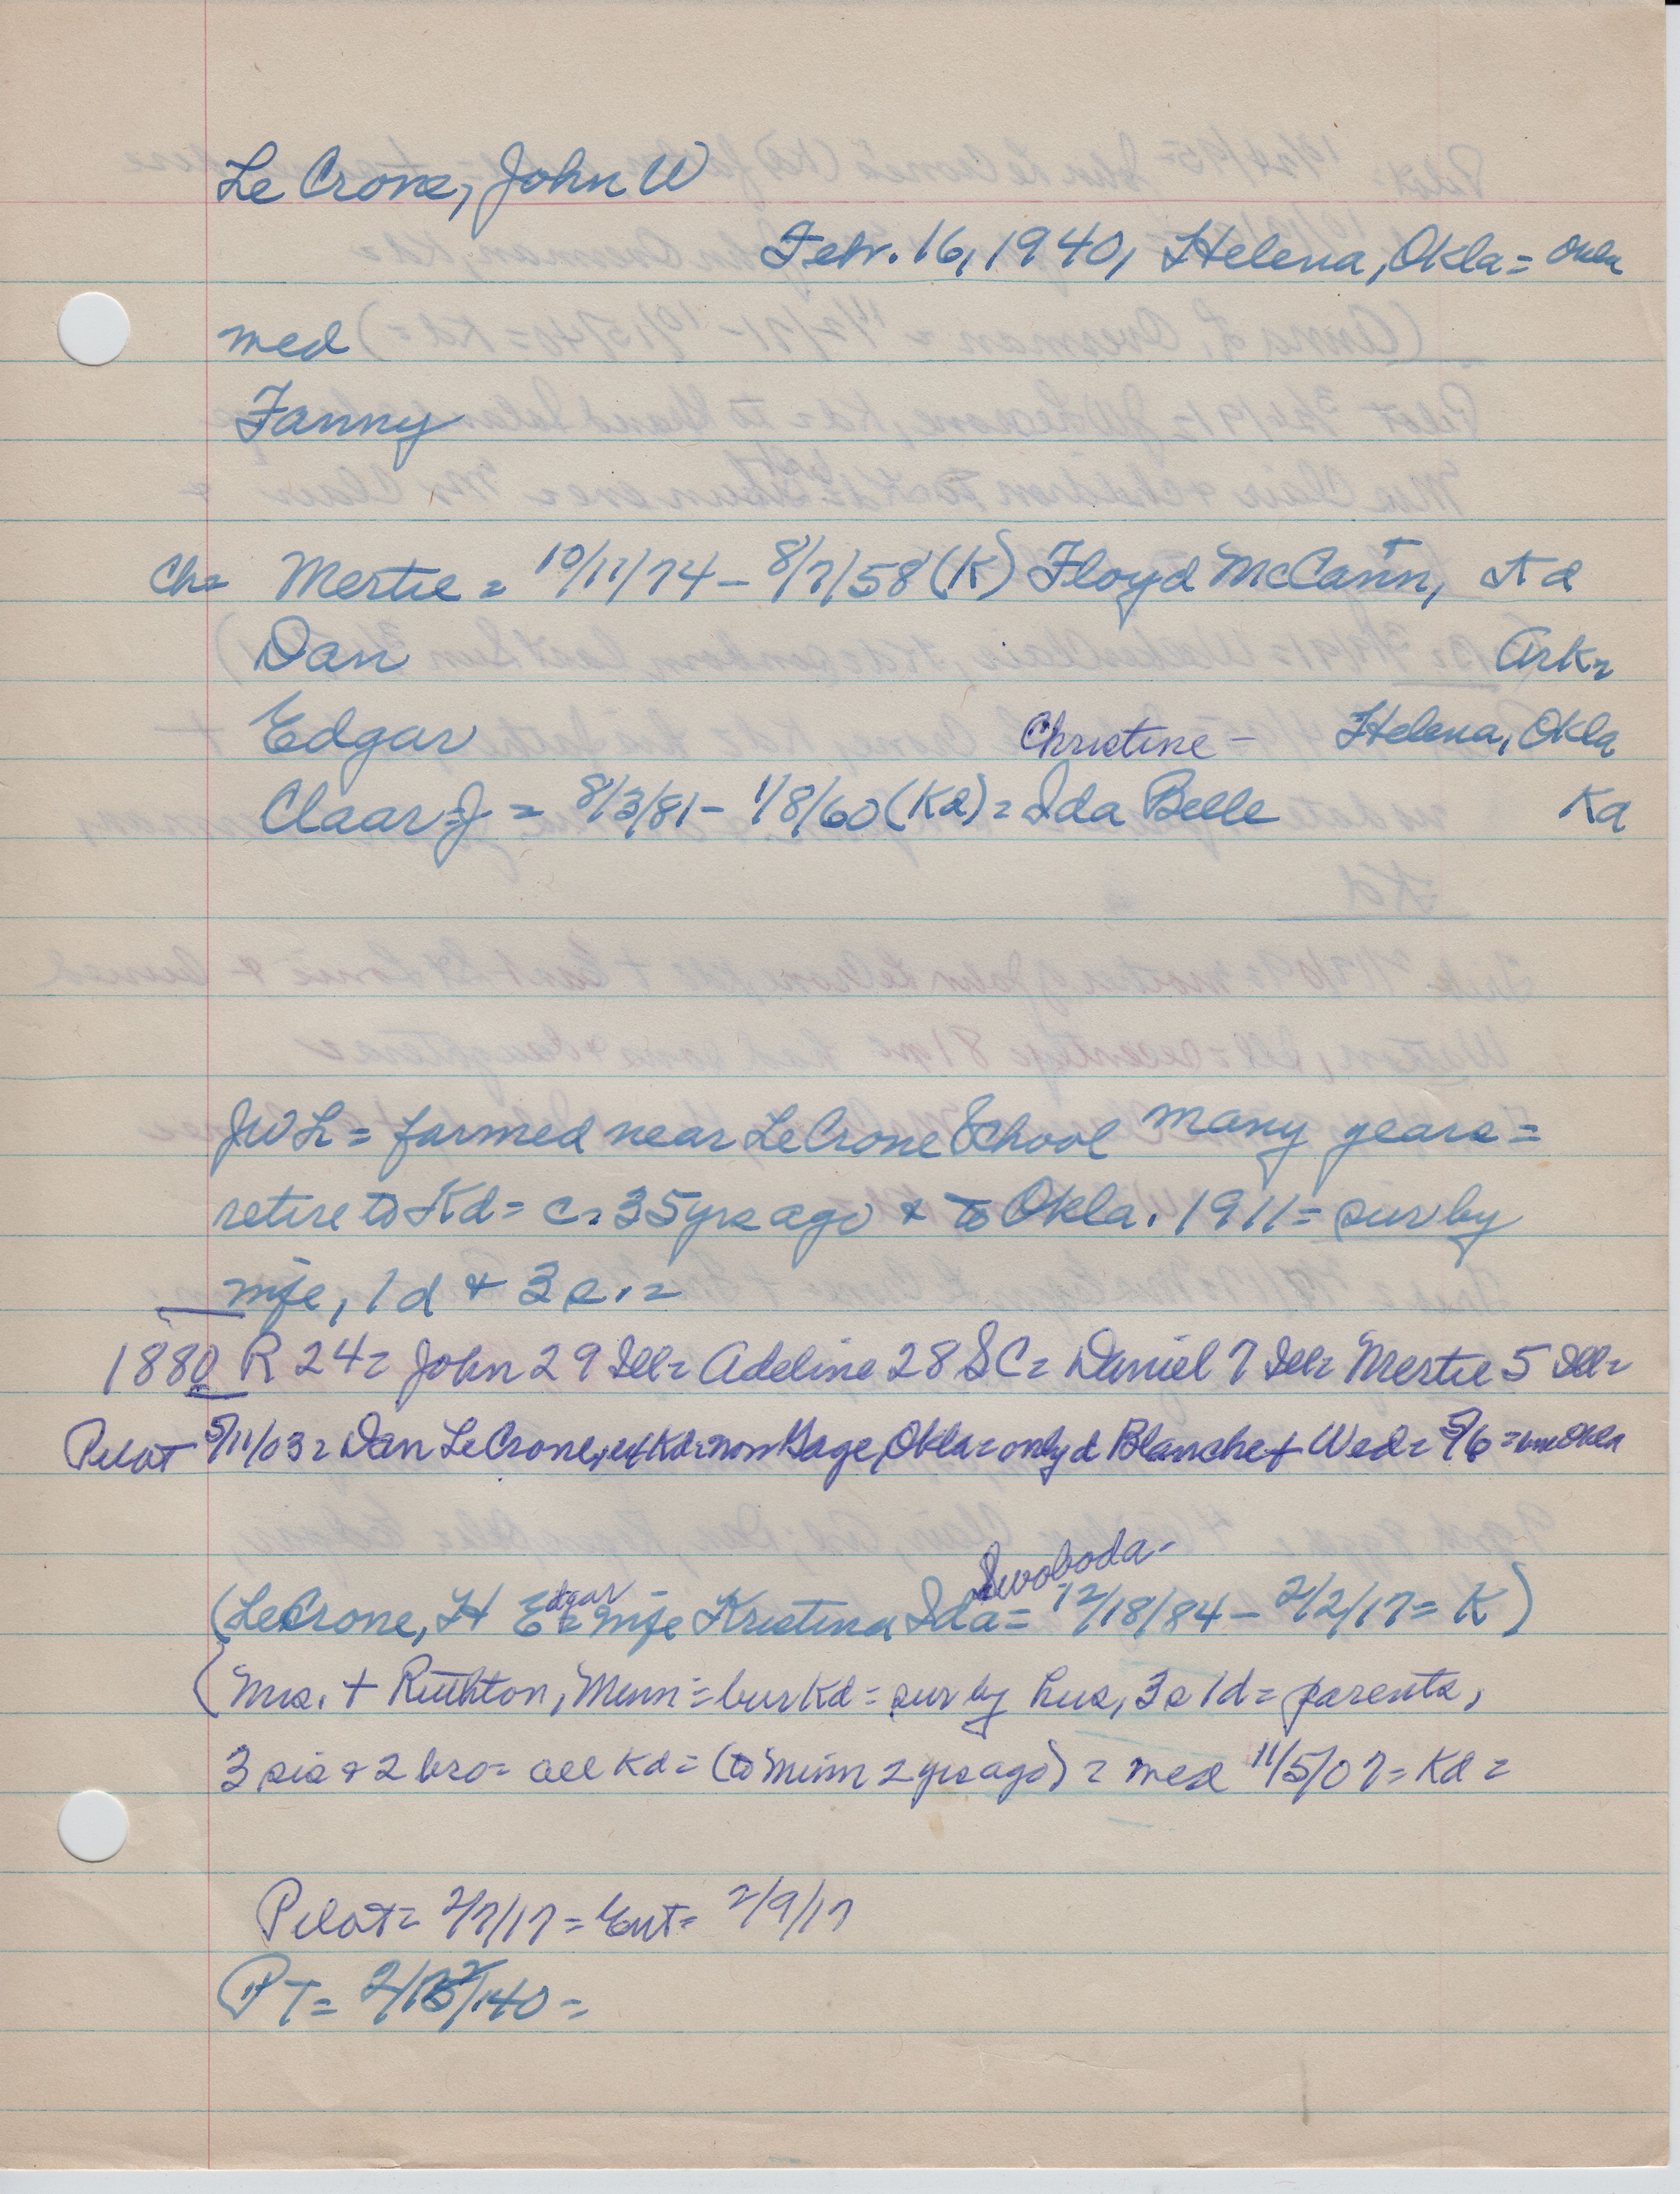 LeCrone, John W
Febr. 16, 1940, Helena, Okla = Okla
med
Fanny
Ch= Mertie = 10/11/74 - 8/7/58 (K) Floyd McCann, Kd
Dan Ark=
Edgar Christine - Helena, Okla
Claar J = 8/3/81 - 1/8/60 (Kd) = Ida Belle Kd
JWL = farmed near LeCrone School many years =
retire to Kd = c. 35 yrs ago & to Okla. 1911 = sur by
wife, 1 d & 3 s. =
1880 R 24 = John 29 Ill = Adeline 28 SC = Daniel 7 Ill = Mertie 5 Ill =
Pilot 5/11/03 = Dan LeCrone, ex Kd = now Gage, Okla = only d Blanche + Wed = 5/6 = bur Okla
Swoboda -
(LeCrone, H Edgar = wife Kristina Ida = 12/18/84 - 2/2/17 = K)
(Mrs. + Ruthton, Minn = bur Kd = sur by hus, 3 s 1 d = parents,
3 sis & 2 bro = all Kd = (to Minn 2 yrs ago) = med 11/5/07 = Kd =
Pilot = 2/7/17 = Ent = 2/9/17
PT = /40 =